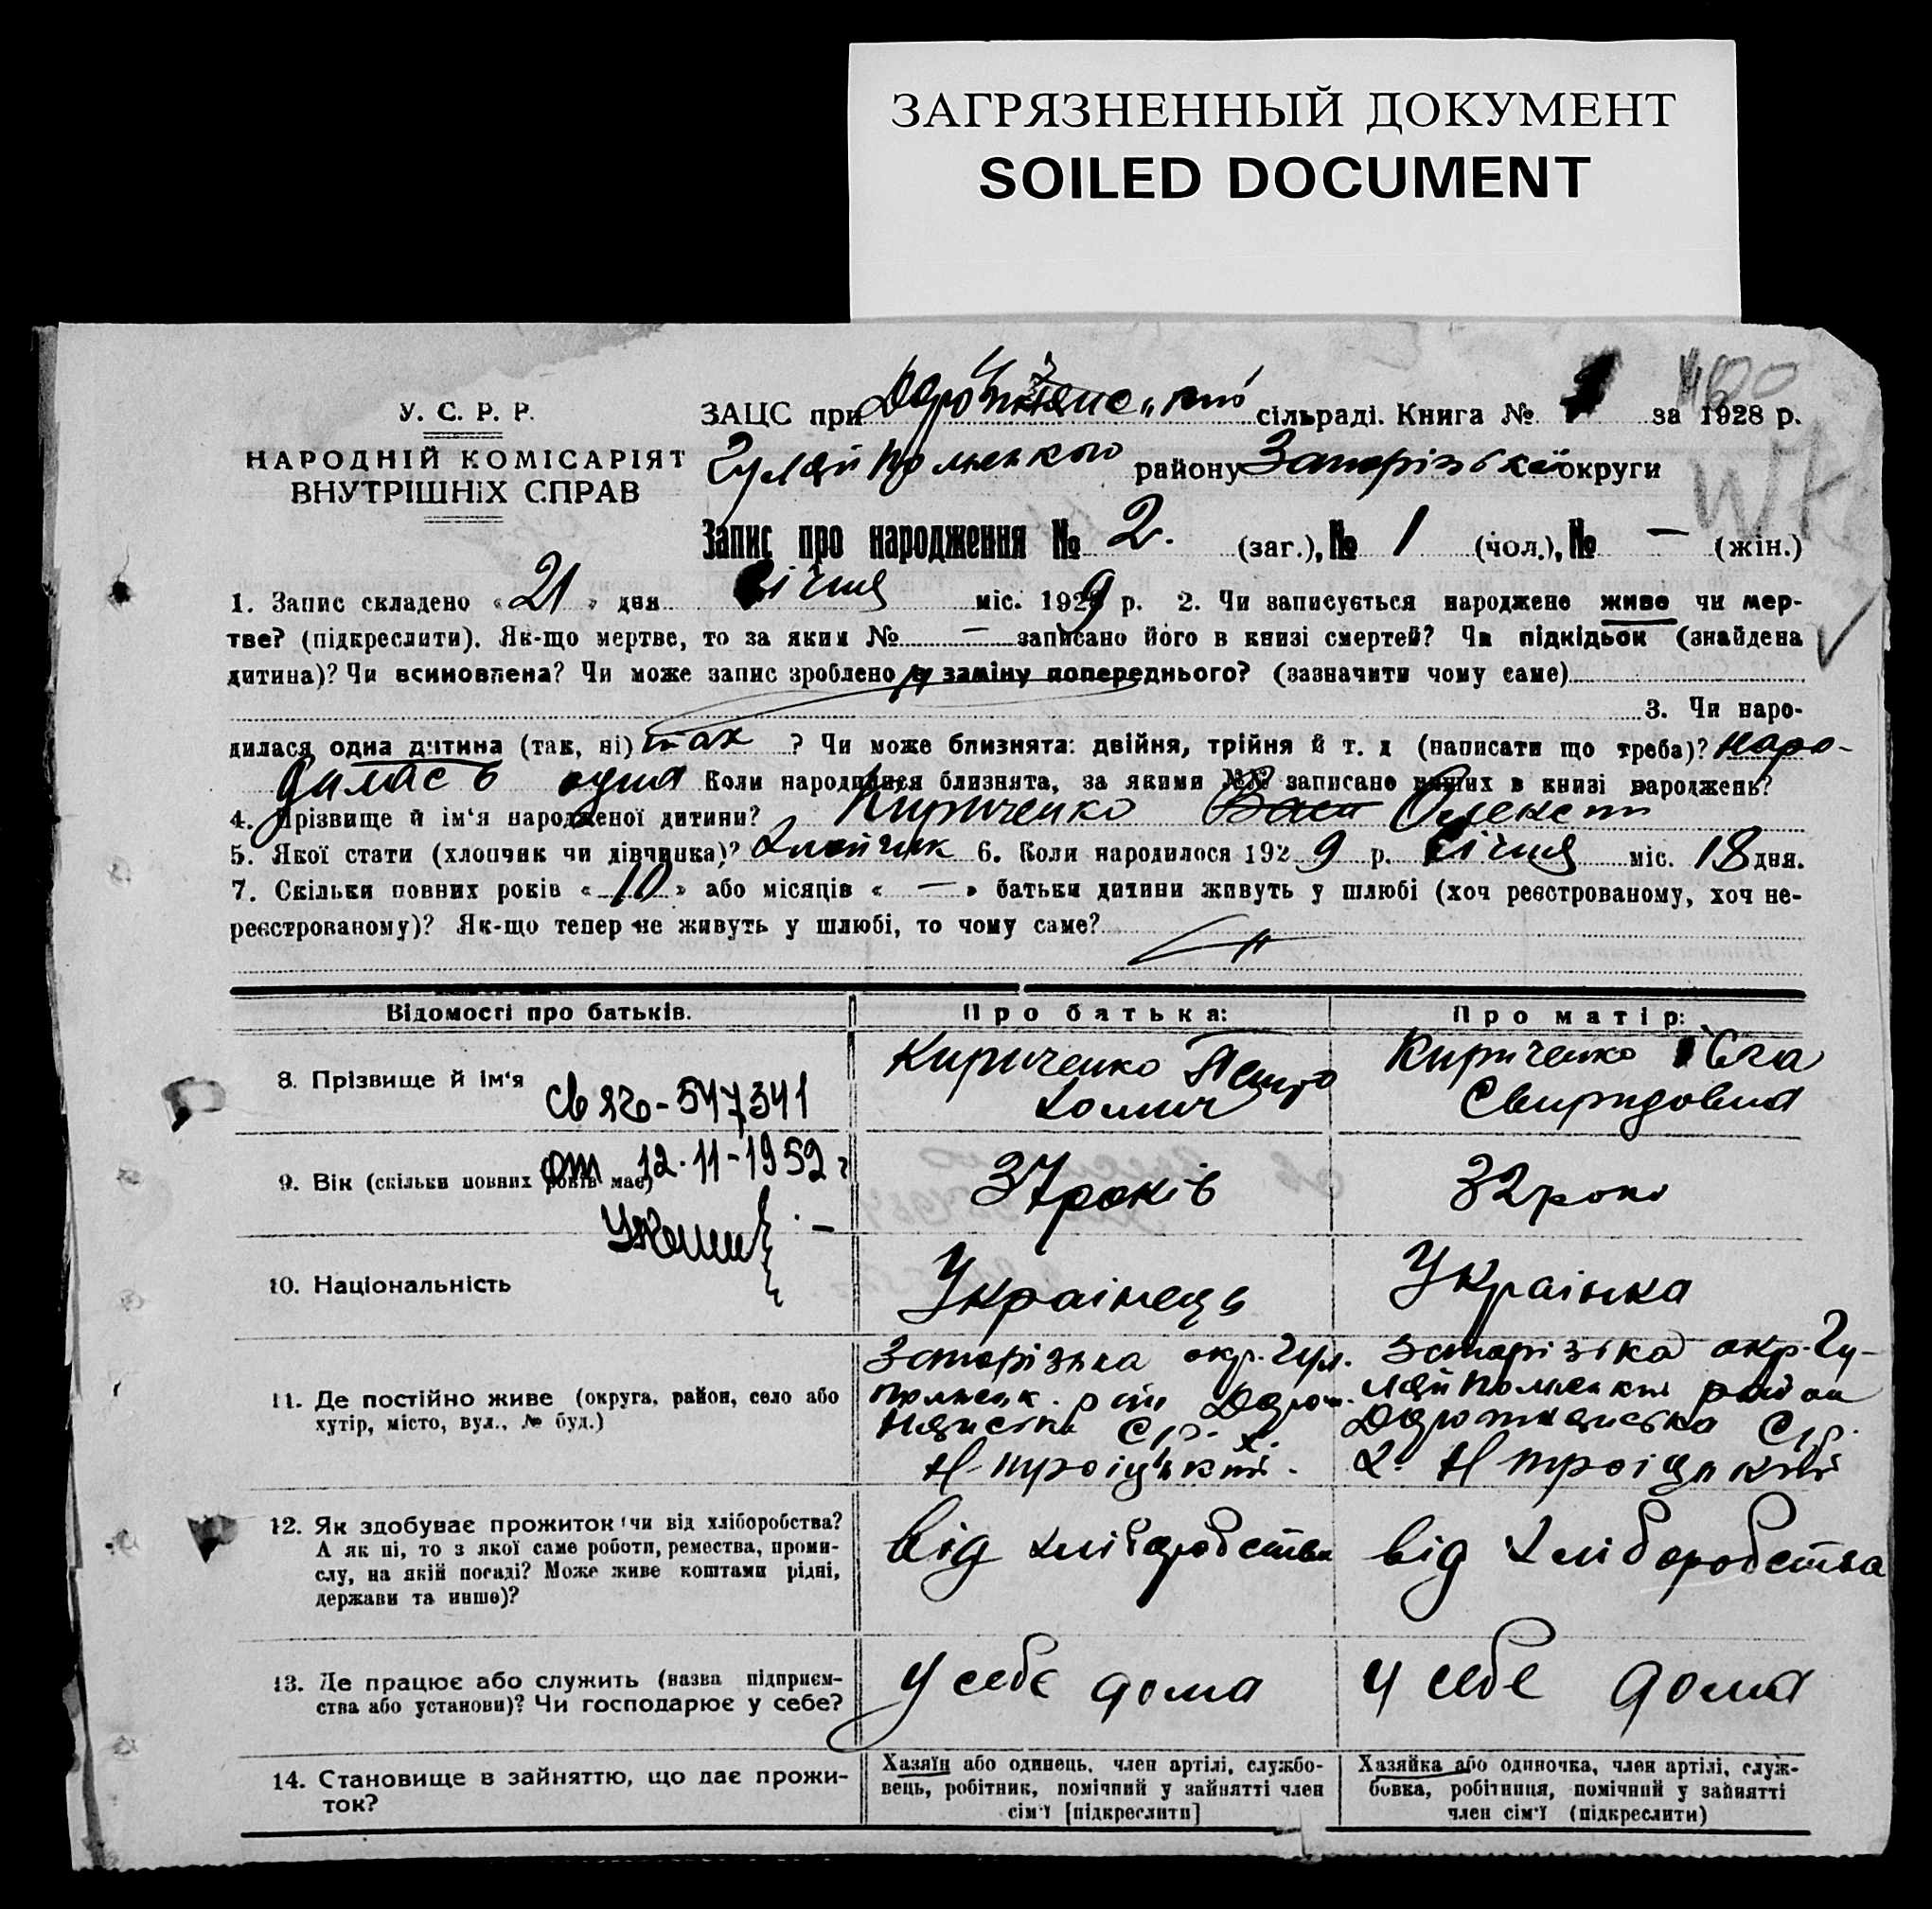 ЗАГРЯЗНЕННЫЙ ДОКУМЕНТ
SOILED DOCUMENT
У. С. Р. Р.
НАРОДНІЙ КОМІСАРІЯТ
ВНУТРІШНІХ СПРАВ
ЗАЦС при сільраді. Книга № за 1928 р.
району Запорізької округи
Запис про народження № 2. (заг.), № 1 (чол.), № — (жін.)
1. Запис складено « 21 » дня січня міс. 1929 р. 2. Чи записується народжене живе чи мер-
тве? (підкреслити). Як-що мертве, то за яким № — записано його в книзі смертей? Чи підкідьок (знайдена
дитина)? Чи всиновлена? Чи може запис зроблено в заміну попереднього? (зазначити чому саме)
3. Чи наро-
дилася одна дитина (так, ні) так ? Чи може близнята: двійня, трійня й т. д (написати що треба)? наро-
дилась одна Коли народилися близнята, за якими №№ записано інших в книзі народжень?
4. Прізвище й ім'я народженої дитини? Кириченко Олексій
5. Якої стати (хлопчик чи дівчинка)? Хлопчик 6. Коли народилося 1929 р. січня міс. 18 дня.
7. Скільки повних років « 10 » або місяців « — » батьки дитини живуть у шлюбі (хоч реєстрованому, хоч не-
реєстрованому)? Як-що тепер не живуть у шлюбі, то чому саме?
Відомості про батьків. Про батька: Про матір:
8. Прізвище й ім'я Кириченко Кириченко
Свиридовна
547341
9. Вік (скільки повних років має) 37 років 32 роки
от 12-11-1952 г
10. Національність Українець Українка
11. Де постійно живе (округа, район, село або
хутір, місто, вул., № буд.)
Запорізька окр. Гул. Запорізька окр. Гу-
12. Як здобуває прожиток (чи від хліборобства?
А як ні, то з якої саме роботи, ремества, проми-
слу, на якій посаді? Може живе коштами рідні,
держави та инше)?
від хліборобства від хліборобства
13. Де працює або служить (назва підприєм-
ства або установи)? Чи господарює у себе?
у себе дома у себе дома
14. Становище в зайняттю, що дає прожи-
ток?
Хазяїн або одинець, член артілі, службо-
вець, робітник, помічний у зайнятті член
сім'ї [підкреслити]
Хазяйка або одиночка, член артілі, служ-
бовка, робітниця, помічний у зайнятті
член сім'ї (підкреслити)